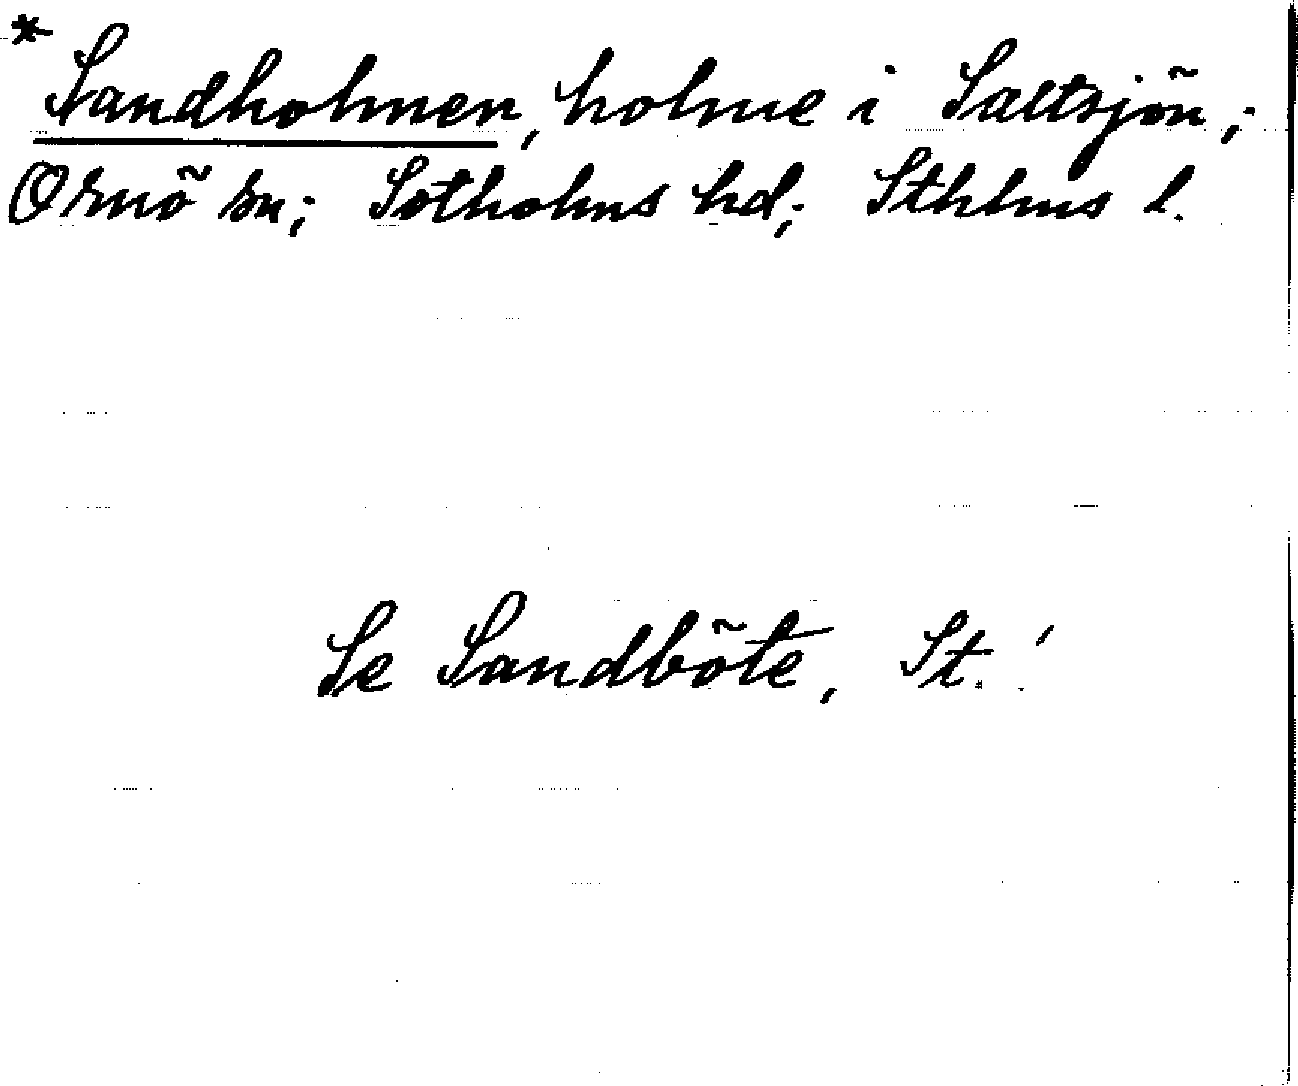 * Sandholmen, holme i Saltsjön;
Ornö sn; Sotholms hd; Sthlms l.
Se Sandböte, St.!